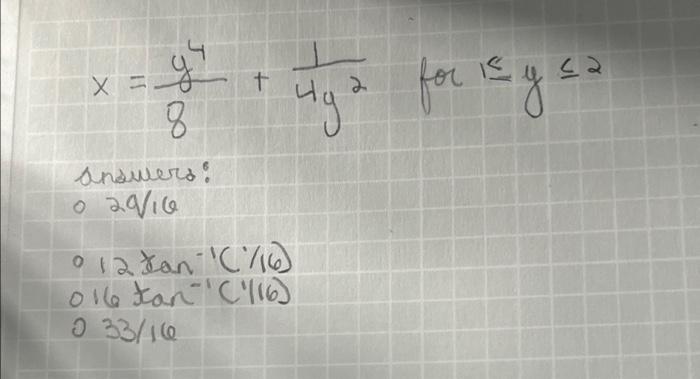 x = y^4/8 + 1/4y^2 for 1≤ y ≤ 2
answers:
o 29/16
o 12 tan^-1(1/16)
o 16 tan^-1(1/16)
o 33/16